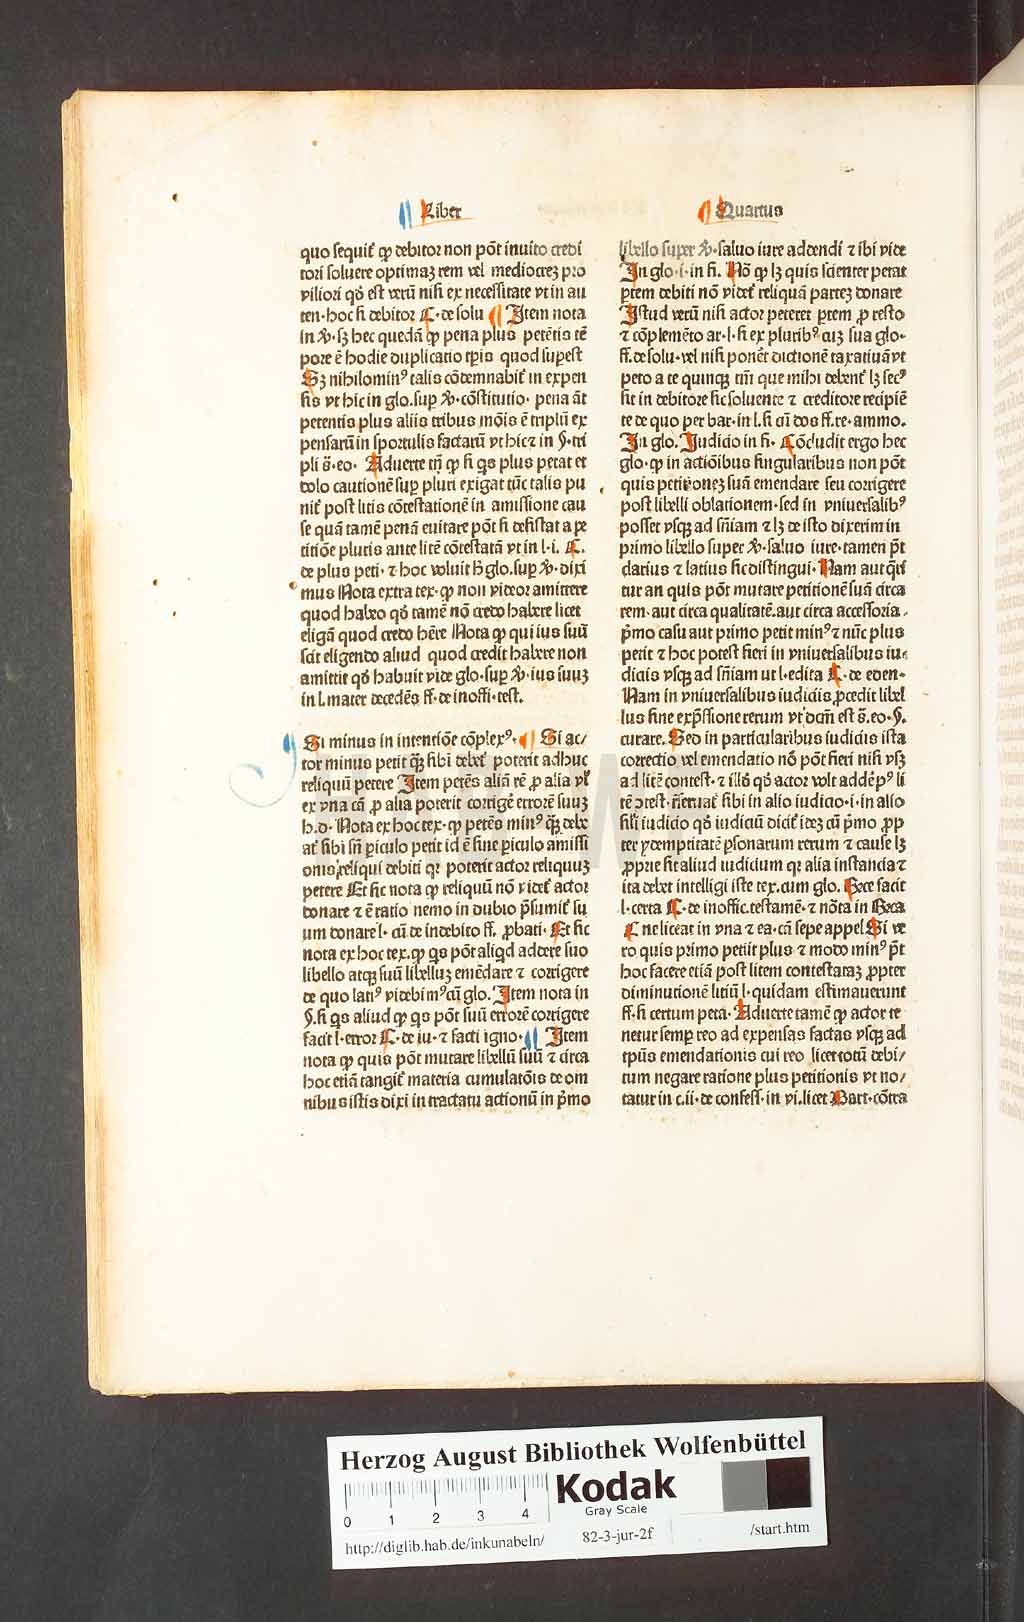 Liber
Quartus
quo sequit̄ ꝙ debitor non pōt inuito credi
tori soluere optimaꝫ rem vel mediocreꝫ pro
viliori qđ est verū nisi ex necessitate vt in au
ten·hoc si debitor C·de solu Item nota
in ꝟ·sꝫ hec quedā ꝙ pena plus petētis tē
pore ē hodie duplicatio tꝑis quod supest
Sꝫ nihilominꝰ talis cōdemnabit̄ in expen
sis vt hic in glo.suꝑ ꝟ·cōstitutio· pena āt
petentis plus aliis tribus mōis ē triplū ex
pensarū in sportulis factarū vt hic ⁊ in §·tri
pli s̄·eo· Aduerte tn̄ ꝙ si qs plus petat et
dolo cautionē suꝑ pluri exigat tūc talis pu
nit̄ post litis cōtestationē in amissione cau
se quā tamē penā euitare pōt si desistat a pe
titiōe pluris ante litē cōtestatā vt in l·i. C.
de plus peti·⁊ hoc voluit h̄ glo.suꝑ ꝟ·dixi
mus Nota extra tex·ꝙ non videor amittere
quod habeo qđ tamē nō credo habere licet
eligā quod credo hēre Nota ꝙ qui ius suū
scit eligendo aliud quod credit habere non
amittit qđ habuit vide glo·suꝑ ꝟ·ius suuꝫ
in l.mater decedēs ff·de inoffi·test.
Si minus in intentiōe cōplexꝰ· Si ac/
tor minus petit qꝫ sibi debet̄ poterit adhuc
reliquū petere Item petēs aliā rē ꝓ alia vl̄
ex vna cā ꝓ alia poterit corrigē errorē suuꝫ
h.d· Nota ex hoc tex·ꝙ petēs minꝰ qꝫ debe
at̄ sibi sn̄ piculo petit id ē sine piculo amissi
onis reliqui debiti qꝛ poterit actor reliquuꝫ
petere Et sic nota ꝙ reliquū nō videt̄ actor
donare ⁊ ē ratio nemo in dubio p̄sumit̄ su
um donare l·cū de indebito ff·ꝓbati· Et sic
nota ex hoc tex.ꝙ qs pōt aliqd addere suo
libello atqꝫ suū libelluꝫ emēdare ⁊ corrigere
de quo latiꝰ videbimꝰ cū glo. Item nota in
§.si qs aliud ꝙ qs pōt suū errorē corrigere
facit l·error C·de iu·⁊ facti igno· Item
nota ꝙ quis pōt mutare libellū suū ⁊ circa
hoc etiā tangit̄ materia cumulatōis de om
nibus istis dixi in tractatu actionū in pͥmo
libello super ꝟ·saluo iure addendi ⁊ ibi vide
In glo·i·in fi. Nō ꝙ lꝫ quis scienter petat
ꝑtem debiti nō videt̄ reliquā parteꝫ donare
Istud verū nisi actor peteret ꝑtem ꝓ resto
⁊ cōplemēto ar·l·si ex pluribꝰ cuꝫ sua glo·
ff.de solu·vel nisi poneret dictionē taxatiuā vt
peto a te quinqꝫ tm̄ que mihi debent̄ lꝫ secꝰ
sit in debitore sic soluente ⁊ creditore recipiē
te de quo per bar·in l.si cū dos ff.re·ammo.
In glo. Iudicio in fi· Cōcludit ergo hec
glo·ꝙ in actiōibus singularibus non pōt
quis petitioneꝫ suā emendare seu corrigere
post libelli oblationem·sed in vniuersalibꝰ
posset vsqꝫ ad sn̄iam ⁊ lꝫ de isto dixerim in
primo libello super ꝟ·saluo iure·tamen p̄t
clarius ⁊ latius sic distingui· Nam aut qrit̄
tur an quis pōt mutare petitionē suā circa
rem·aut circa qualitatē.aut circa accessoria.
pͥmo casu aut primo petit minꝰ ⁊ nūc plus
petit ⁊ hoc potest fieri in vniuersalibus iu
diciis vsqꝫ ad sn̄iam ut l·edita C·de eden·
Nam in vniuersalibus iudiciis ꝓcedit libel
lus sine exp̄ssione rerum vt dcm̄ est s̄.eo·§.
curare. Sed in particularibus iudiciis ista
correctio vel emendatio nō pōt fieri nisi vsꝫ
ad litē contest·⁊ illđ qđ actor volt addē pꝰ li
tē ꝯtest·reseruat̄ sibi in alio iudicio·i·in alio
sil̄i iudicio qđ iudiciū dicit̄ ideꝫ cū pͥmo ꝓp
ter ydemptitatē ꝑsonarum rerum ⁊ cause lꝫ
ꝓprie sit aliud iudicium qꝛ alia instancia ⁊
ita debet intelligi iste tex.cum glo. Hec facit
l·certa C·de inoffic.testamē·⁊ nōta in
C ne liceat in vna ⁊ ea·cā sepe appel Si ve
ro quis primo petiit plus ⁊ modo minꝰ p̄t
hoc facere etiā post litem contestataꝫ ꝓpter
diminutionē litiū l·quidam estimauerunt
ff·si certum peta· Aduerte tamē ꝙ actor te
netur semꝑ reo ad expensas factas vsqꝫ ad
tpūs emendationis cui reo licet totū debi/
tum negare ratione plus petitionis vt no/
tatur in c.ii·de confess·in vi.licet Bart·cōtra
Herzog August Bibliothek Wolfenbüttel
Kodak
Gray Scale
0 1 2 3 4
http://diglib.hab.de/inkunabeln/ 82-3-jur-2f /start.htm